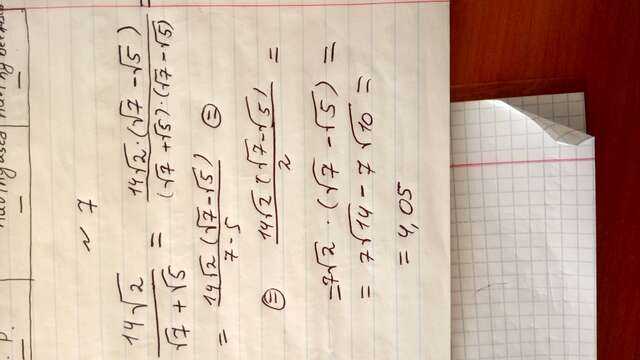 № 7
14√2 / √7 + √5 = 14√2 · (√7 - √5) / (√7 + √5) · (√7 - √5) =
= 14√2 (√7 - √5) / 7 - 5 =
= 14√2 (√7 - √5) / 2 =
= 7√2 · (√7 - √5) =
= 7√14 - 7√10 =
= 4,05